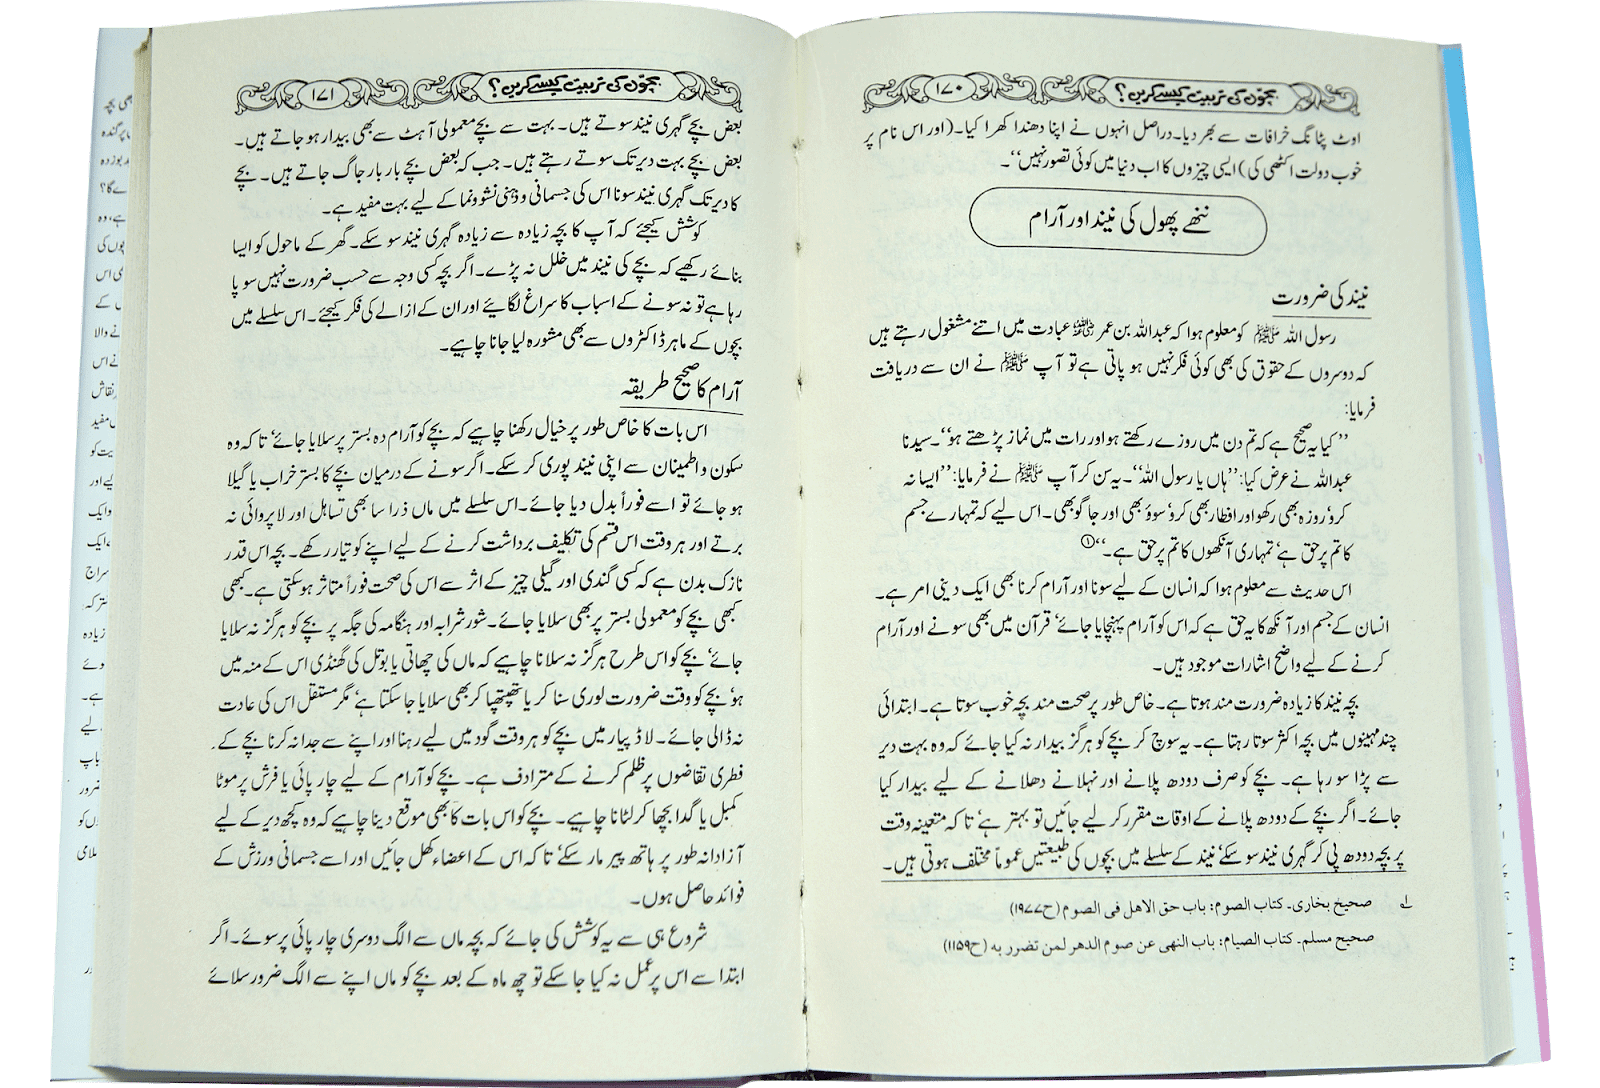 بچوں کی تربیت کیسے کریں؟
۱۷۰
اوٹ پٹانگ خرافات سے بھر دیا۔ دراصل انہوں نے اپنا دھندا کھرا کیا۔ (اور اس نام پر
خوب دولت اکٹھی کی) ایسی چیزوں کا اب دنیا میں کوئی تصور نہیں‘‘۔
ننھے پھول کی نیند اور آرام
نیند کی ضرورت
رسول اللہ ﷺ کو معلوم ہوا کہ عبداللہ بن عمر رضی اللہ عنہ عبادت میں اتنے مشغول رہتے ہیں
کہ دوسروں کے حقوق کی بھی کوئی فکر نہیں ہو پاتی ہے تو آپ ﷺ نے ان سے دریافت
فرمایا:
’’کیا یہ صحیح ہے کہ تم دن میں روزے رکھتے ہو اور رات میں نماز پڑھتے ہو‘‘۔ سیدنا
عبداللہ نے عرض کیا: ’’ہاں یا رسول اللہ‘‘۔ یہ سن کر آپ ﷺ نے فرمایا: ’’ایسا نہ
کرو‘ روزہ بھی رکھو اور افطار بھی کرو‘ سوؤ بھی اور جاگو بھی۔ اس لیے کہ تمہارے جسم
کا تم پر حق ہے‘ تمہاری آنکھوں کا تم پر حق ہے۔‘‘①
اس حدیث سے معلوم ہوا کہ انسان کے لیے سونا اور آرام کرنا بھی ایک دینی امر ہے۔
انسان کے جسم اور آنکھ کا یہ حق ہے کہ اس کو آرام پہنچایا جائے‘ قرآن میں بھی سونے اور آرام
کرنے کے لیے واضح اشارات موجود ہیں۔
بچہ نیند کا زیادہ ضرورت مند ہوتا ہے۔ خاص طور پر صحت مند بچہ خوب سوتا ہے۔ ابتدائی
چند مہینوں میں بچہ اکثر سوتا رہتا ہے۔ یہ سوچ کر بچے کو ہرگز بیدار نہ کیا جائے کہ وہ بہت دیر
سے پڑا سو رہا ہے۔ بچے کو صرف دودھ پلانے اور نہلانے دھلانے کے لیے بیدار کیا
جائے۔ اگر بچے کے دودھ پلانے کے اوقات مقرر کر لیے جائیں تو بہتر ہے‘ تاکہ متعینہ وقت
پر بچہ دودھ پی کر گہری نیند سو سکے‘ نیند کے سلسلے میں بچوں کی طبیعتیں عموماً مختلف ہوتی ہیں۔
۱؎ صحیح بخاری۔ کتاب الصوم: باب حق الاهل فی الصوم (ح۱۹۷۷)
صحیح مسلم۔ کتاب الصیام: باب النهی عن صوم الدهر لمن تضرر به (ح۱۱۵۹)
بچوں کی تربیت کیسے کریں؟
۱۷۱
بعض بچے گہری نیند سوتے ہیں۔ بہت سے بچے معمولی آہٹ سے بھی بیدار ہو جاتے ہیں۔
بعض بچے بہت دیر تک سوتے رہتے ہیں۔ جب کہ بعض بچے بار بار جاگ جاتے ہیں۔ بچے
کا دیر تک گہری نیند سونا اس کی جسمانی و ذہنی نشوونما کے لیے بہت مفید ہے۔
کوشش کیجئے کہ آپ کا بچہ زیادہ سے زیادہ گہری نیند سو سکے۔ گھر کے ماحول کو ایسا
بنائے رکھیے کہ بچے کی نیند میں خلل نہ پڑے۔ اگر بچہ کسی وجہ سے حسب ضرورت نہیں سو پا
رہا ہے تو نہ سونے کے اسباب کا سراغ لگائیے اور ان کے ازالے کی فکر کیجئے۔ اس سلسلے میں
بچوں کے ماہر ڈاکٹروں سے بھی مشورہ لیا جانا چاہیے۔
آرام کا صحیح طریقہ
اس بات کا خاص طور پر خیال رکھنا چاہیے کہ بچے کو آرام دہ بستر پر سلایا جائے‘ تاکہ وہ
سکون و اطمینان سے اپنی نیند پوری کر سکے۔ اگر سونے کے درمیان بچے کا بستر خراب یا گیلا
ہو جائے تو اسے فوراً بدل دیا جائے۔ اس سلسلے میں ماں ذرا سا بھی تساہل اور لاپروائی نہ
برتے اور ہر وقت اس قسم کی تکلیف برداشت کرنے کے لیے اپنے کو تیار رکھے۔ بچہ اس قدر
نازک بدن ہے کہ کسی گندی اور گیلی چیز کے اثر سے اس کی صحت فوراً متاثر ہو سکتی ہے۔ کبھی
کبھی بچے کو معمولی بستر پر بھی سلایا جائے۔ شور شرابہ اور ہنگامہ کی جگہ پر بچے کو ہرگز نہ سلایا
جائے‘ بچے کو اس طرح ہرگز نہ سلانا چاہیے کہ ماں کی چھاتی یا بوتل کی گھنڈی اس کے منہ میں
ہو‘ بچے کو وقت ضرورت لوری سنا کر یا تھپتھپا کر بھی سلایا جا سکتا ہے‘ مگر مستقل اس کی عادت
نہ ڈالی جائے۔ لاڈ پیار میں بچے کو ہر وقت گود میں لیے رہنا اور اپنے سے جدا نہ کرنا بچے کے
فطری تقاضوں پر ظلم کرنے کے مترادف ہے۔ بچے کو آرام کے لیے چار پائی یا فرش پر موٹا
کمبل یا گدا بچھا کر لٹانا چاہیے۔ بچے کو اس بات کا بھی موقع دینا چاہیے کہ وہ کچھ دیر کے لیے
آزادانہ طور پر ہاتھ پیر مار سکے‘ تاکہ اس کے اعضاء کھل جائیں اور اسے جسمانی ورزش کے
فوائد حاصل ہوں۔
شروع ہی سے یہ کوشش کی جائے کہ بچہ ماں سے الگ دوسری چار پائی پر سوئے۔ اگر
ابتدا سے اس پر عمل نہ کیا جا سکے تو چھ ماہ کے بعد بچے کو ماں اپنے سے الگ ضرور سلائے